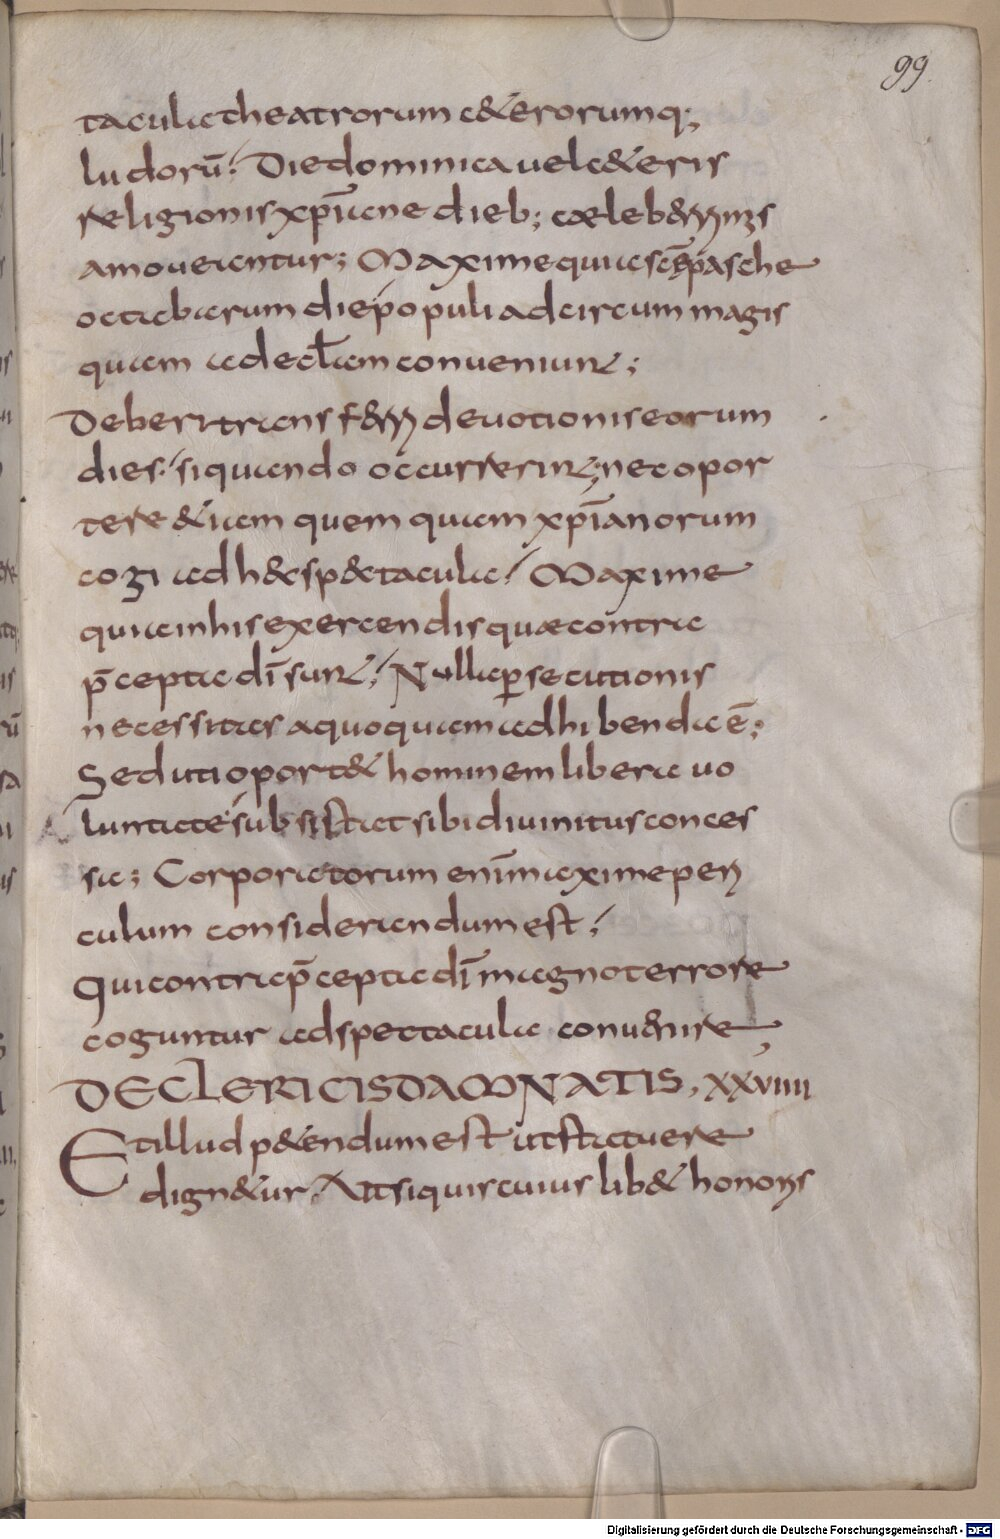 99.
taculatheatrorum c&erorumq;
ludorū. Diedominica uel c&eris
religionis xp̄iane dieb; caeleb&rrimis
amoueantur; Maxime quia scē paschae
octabarum die populi ad circum magis
quam ad eclam conueniunt;
Debere transferri deuotionis eorum
dies. si quando occurrerint; nec opor
tere &iam quemquam xp̄ianorum
cogi ad haec sp&tacula. Maxime
quia in his exercendis quae contra
p̄cepta dī sunt. Nulla persecutionis
necessitas a quoquam adhibenda ē;
Sed uti oport& hominem libera uo
luntate subsistat sibi diuinitus conces
sa; Corporatorum enim maxime peri
culum considerandum est.
Qui contra p̄cepta dī magno terrore
coguntur ad spectacula conuenire,
DE CLERICIS DAMNATIS, XXVIIII
Et illud p&endum est ut statuere
dign&ur. Ut si quis cuiuslib& honoris
Digitalisierung gefördert durch die Deutsche Forschungsgemeinschaft - DFG